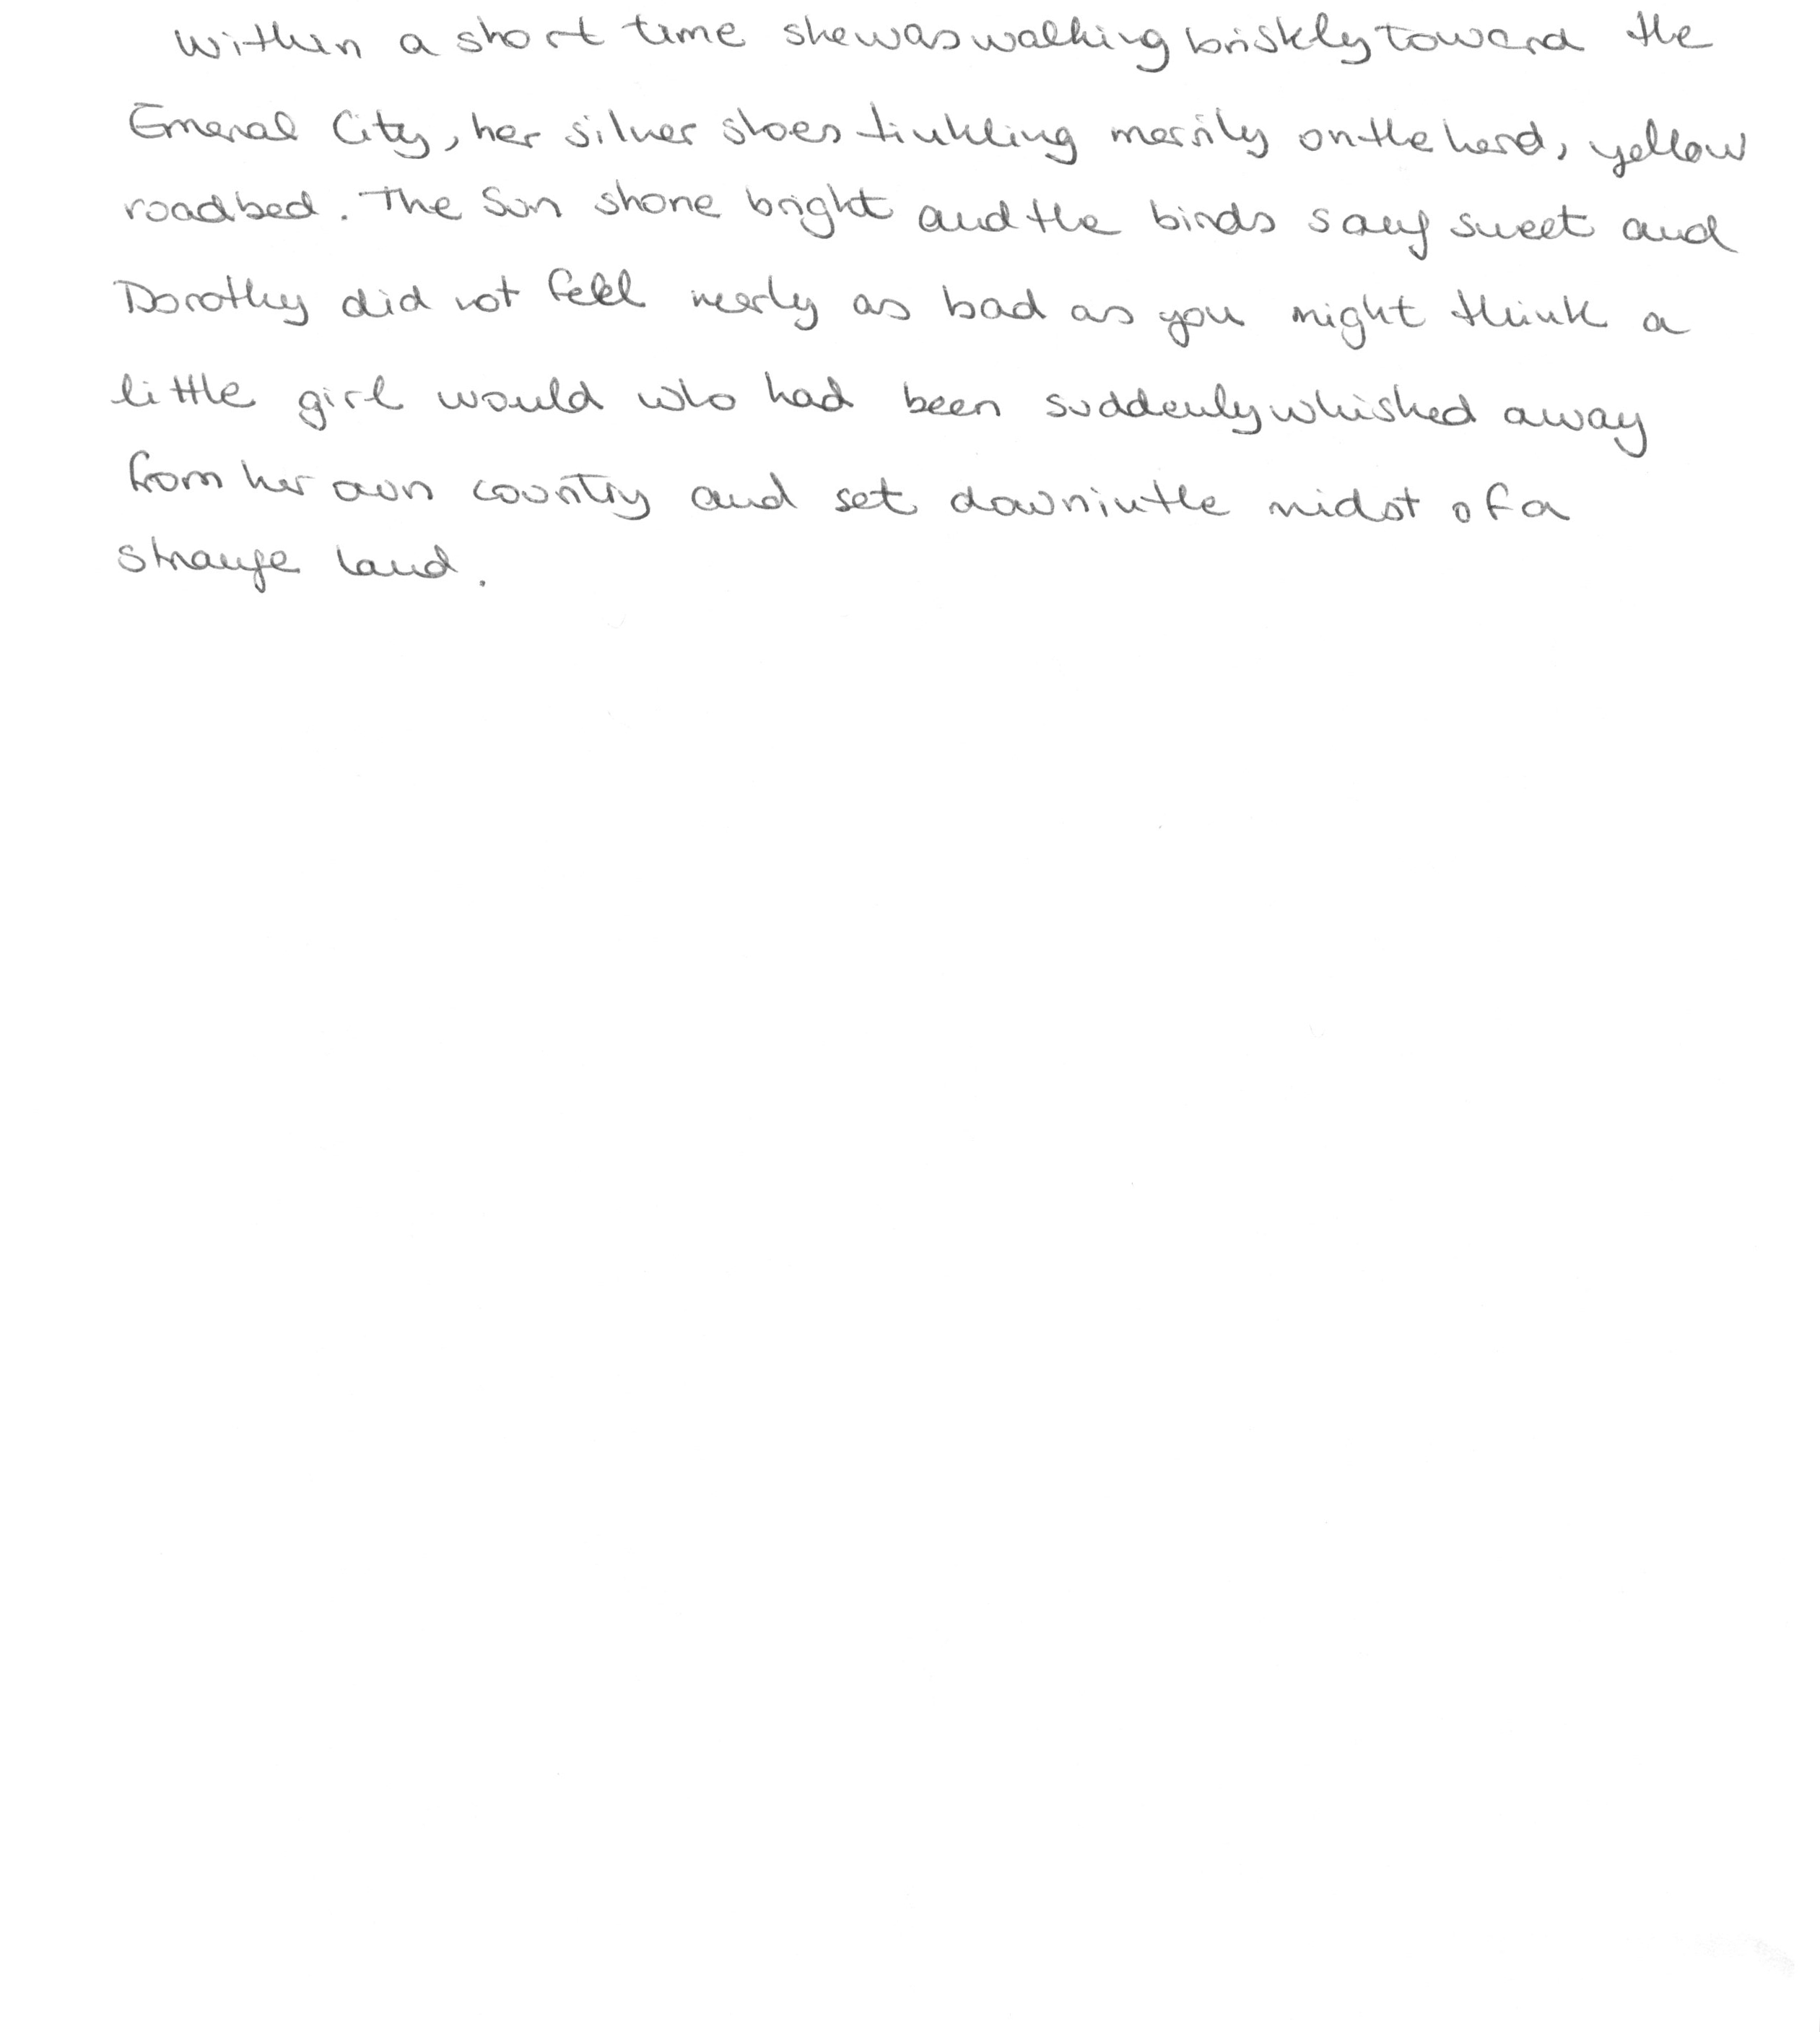 Within a short time she was walking briskly toward the
Emerald City, her silver shoes tinkling merrily on the hard, yellow
roadbed. The Sun shone bright and the birds sang sweet and
Dorothy did not feel nearly as bad as you might think a
little girl would who had been suddenly whisked away
from her own country and set down in the midst of a
strange land.